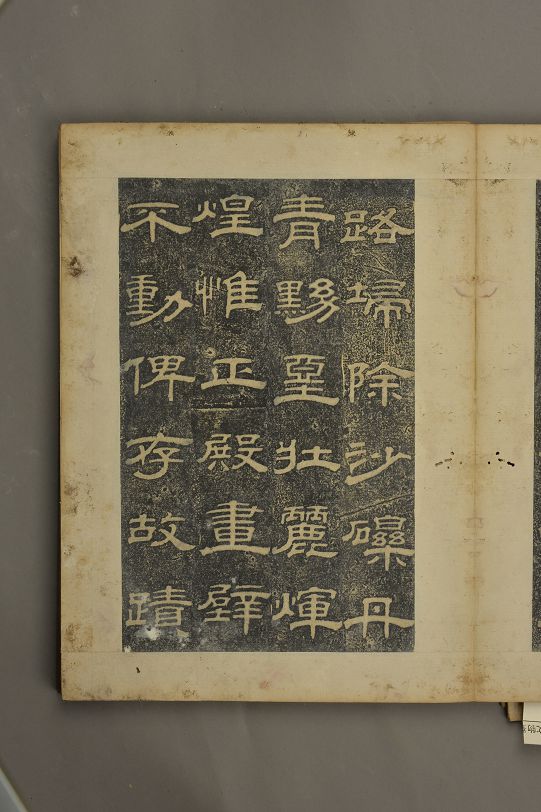 路埽除沙礫丹
青黝堊壯麗煇
煌惟正殿畫壁
不動俾存故蹟